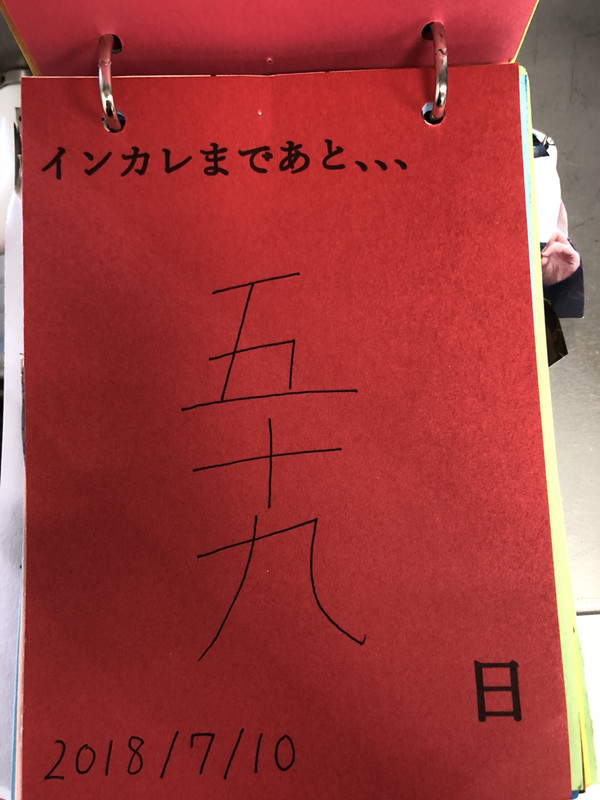 インカレまであと、、、
五十九
日
2018/7/10